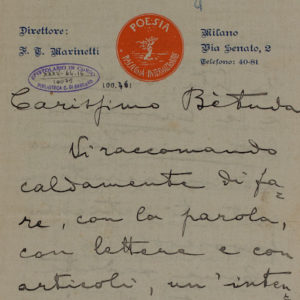 Direttore:
F. T. Marinetti
POESIA
RASSEGNA INTERNAZIONALE
Milano
Via Senato, 2
Telefono: 40-81
100.761
Carissimo Bètuda
Vi raccomando
caldamente di fa=
re, con la parola,
con lettere e con
articoli, un'inten=